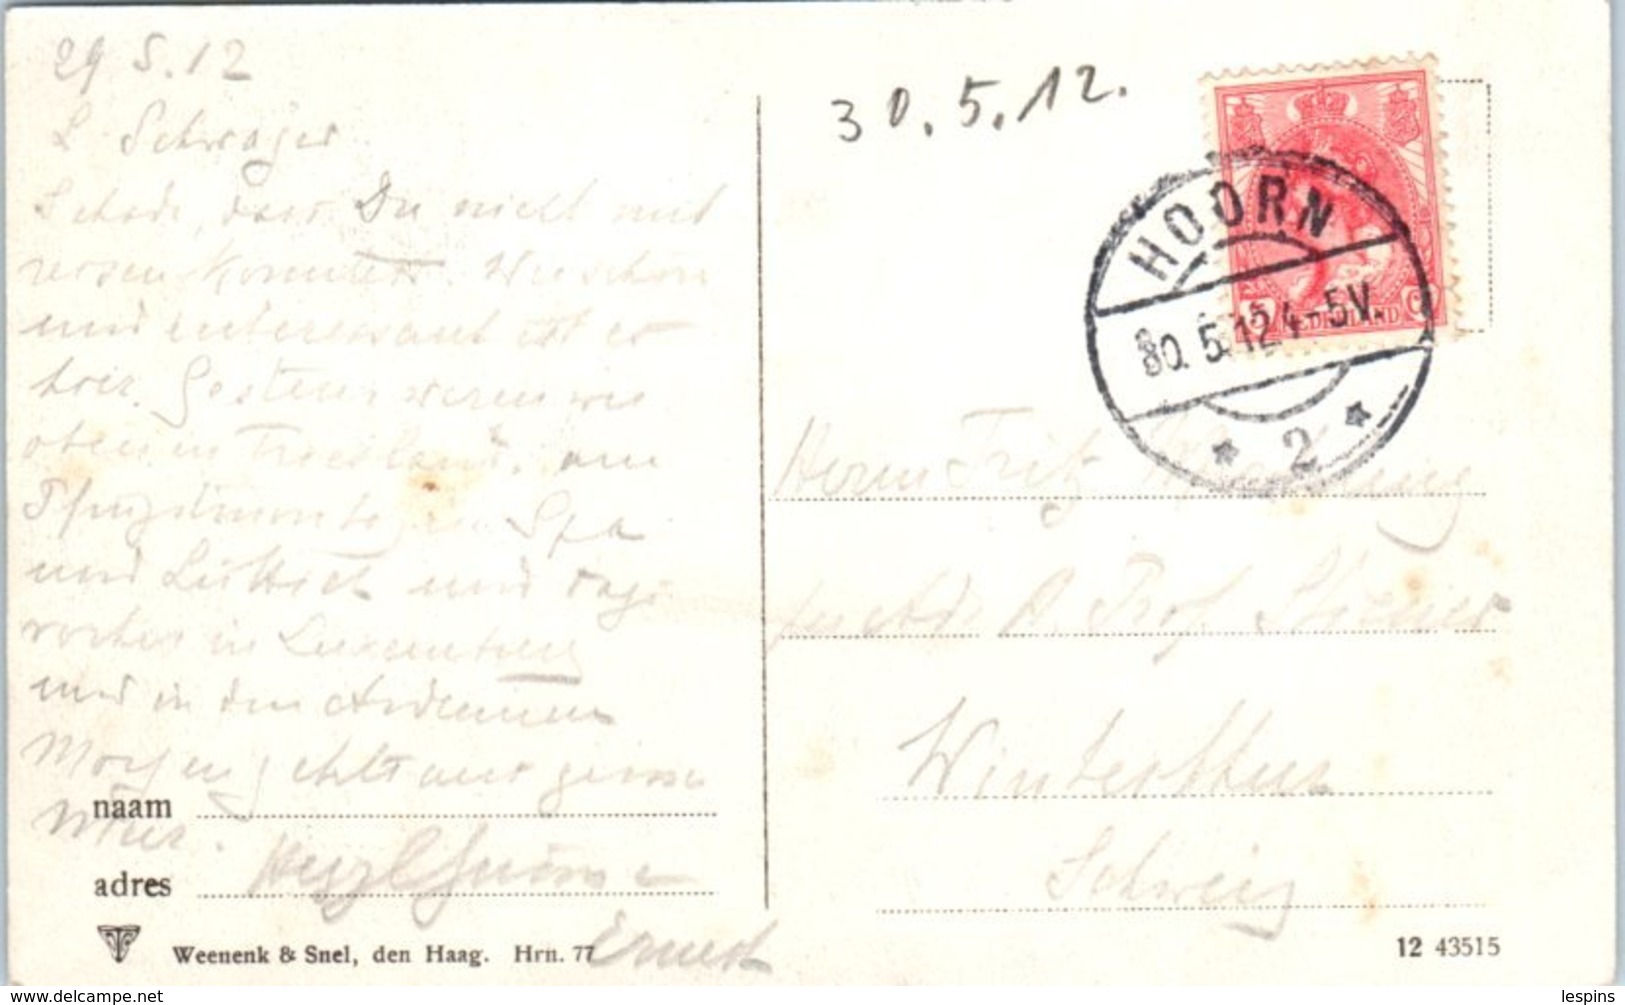 29 5. 12
L. Schwager
Schade, dass Du nicht mit
reisen konntest. Wie schön
und interessant ist es
hier. Gestern waren wir
oben in Friesland, am
Pfingstmontag in Spa
und Lüttich und tags
vorher in Luxemburg
und in den Ardennen
Morgen gehts
Herzl Grüsse
Ernest
naam
adres
Weenenk & Snel, den Haag. Hrn. 77
30.5.12.
HOORN
30. 5. 12 4-5V.
* 2 *
NEDERLAND
Herrn Fritz
Adr. Prof.
Winterthur
Schweiz
12 43515
lespins